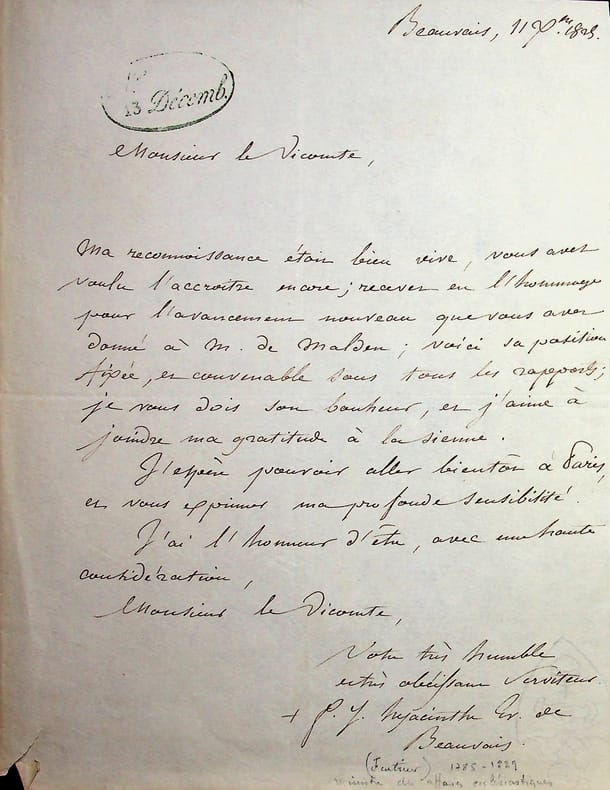 Beauvais, 11 Xbre. 1825.
13 Décemb.
Monsieur le Vicomte,
Ma reconnoissance étoit bien vive, vous avez
voulu l'accroître encore; recevez en l'hommage
pour l'avancement nouveau que vous avez
donné à M. de Malden; voici sa position
fixée, et convenable sous tous les rapports;
je vous dois son bonheur, et j'aime à
joindre ma gratitude à la sienne.
J'espère pouvoir aller bientôt à Paris,
et vous exprimer ma profonde sensibilité.
J'ai l'honneur d'être, avec une haute
considération,
Monsieur le Vicomte,
Votre très humble
et très obéissant Serviteur.
+ f. j. hyacinthe Ev. de
Beauvais.
(Feutrier) 1785-1829
ministre des affaires ecclésiastiques